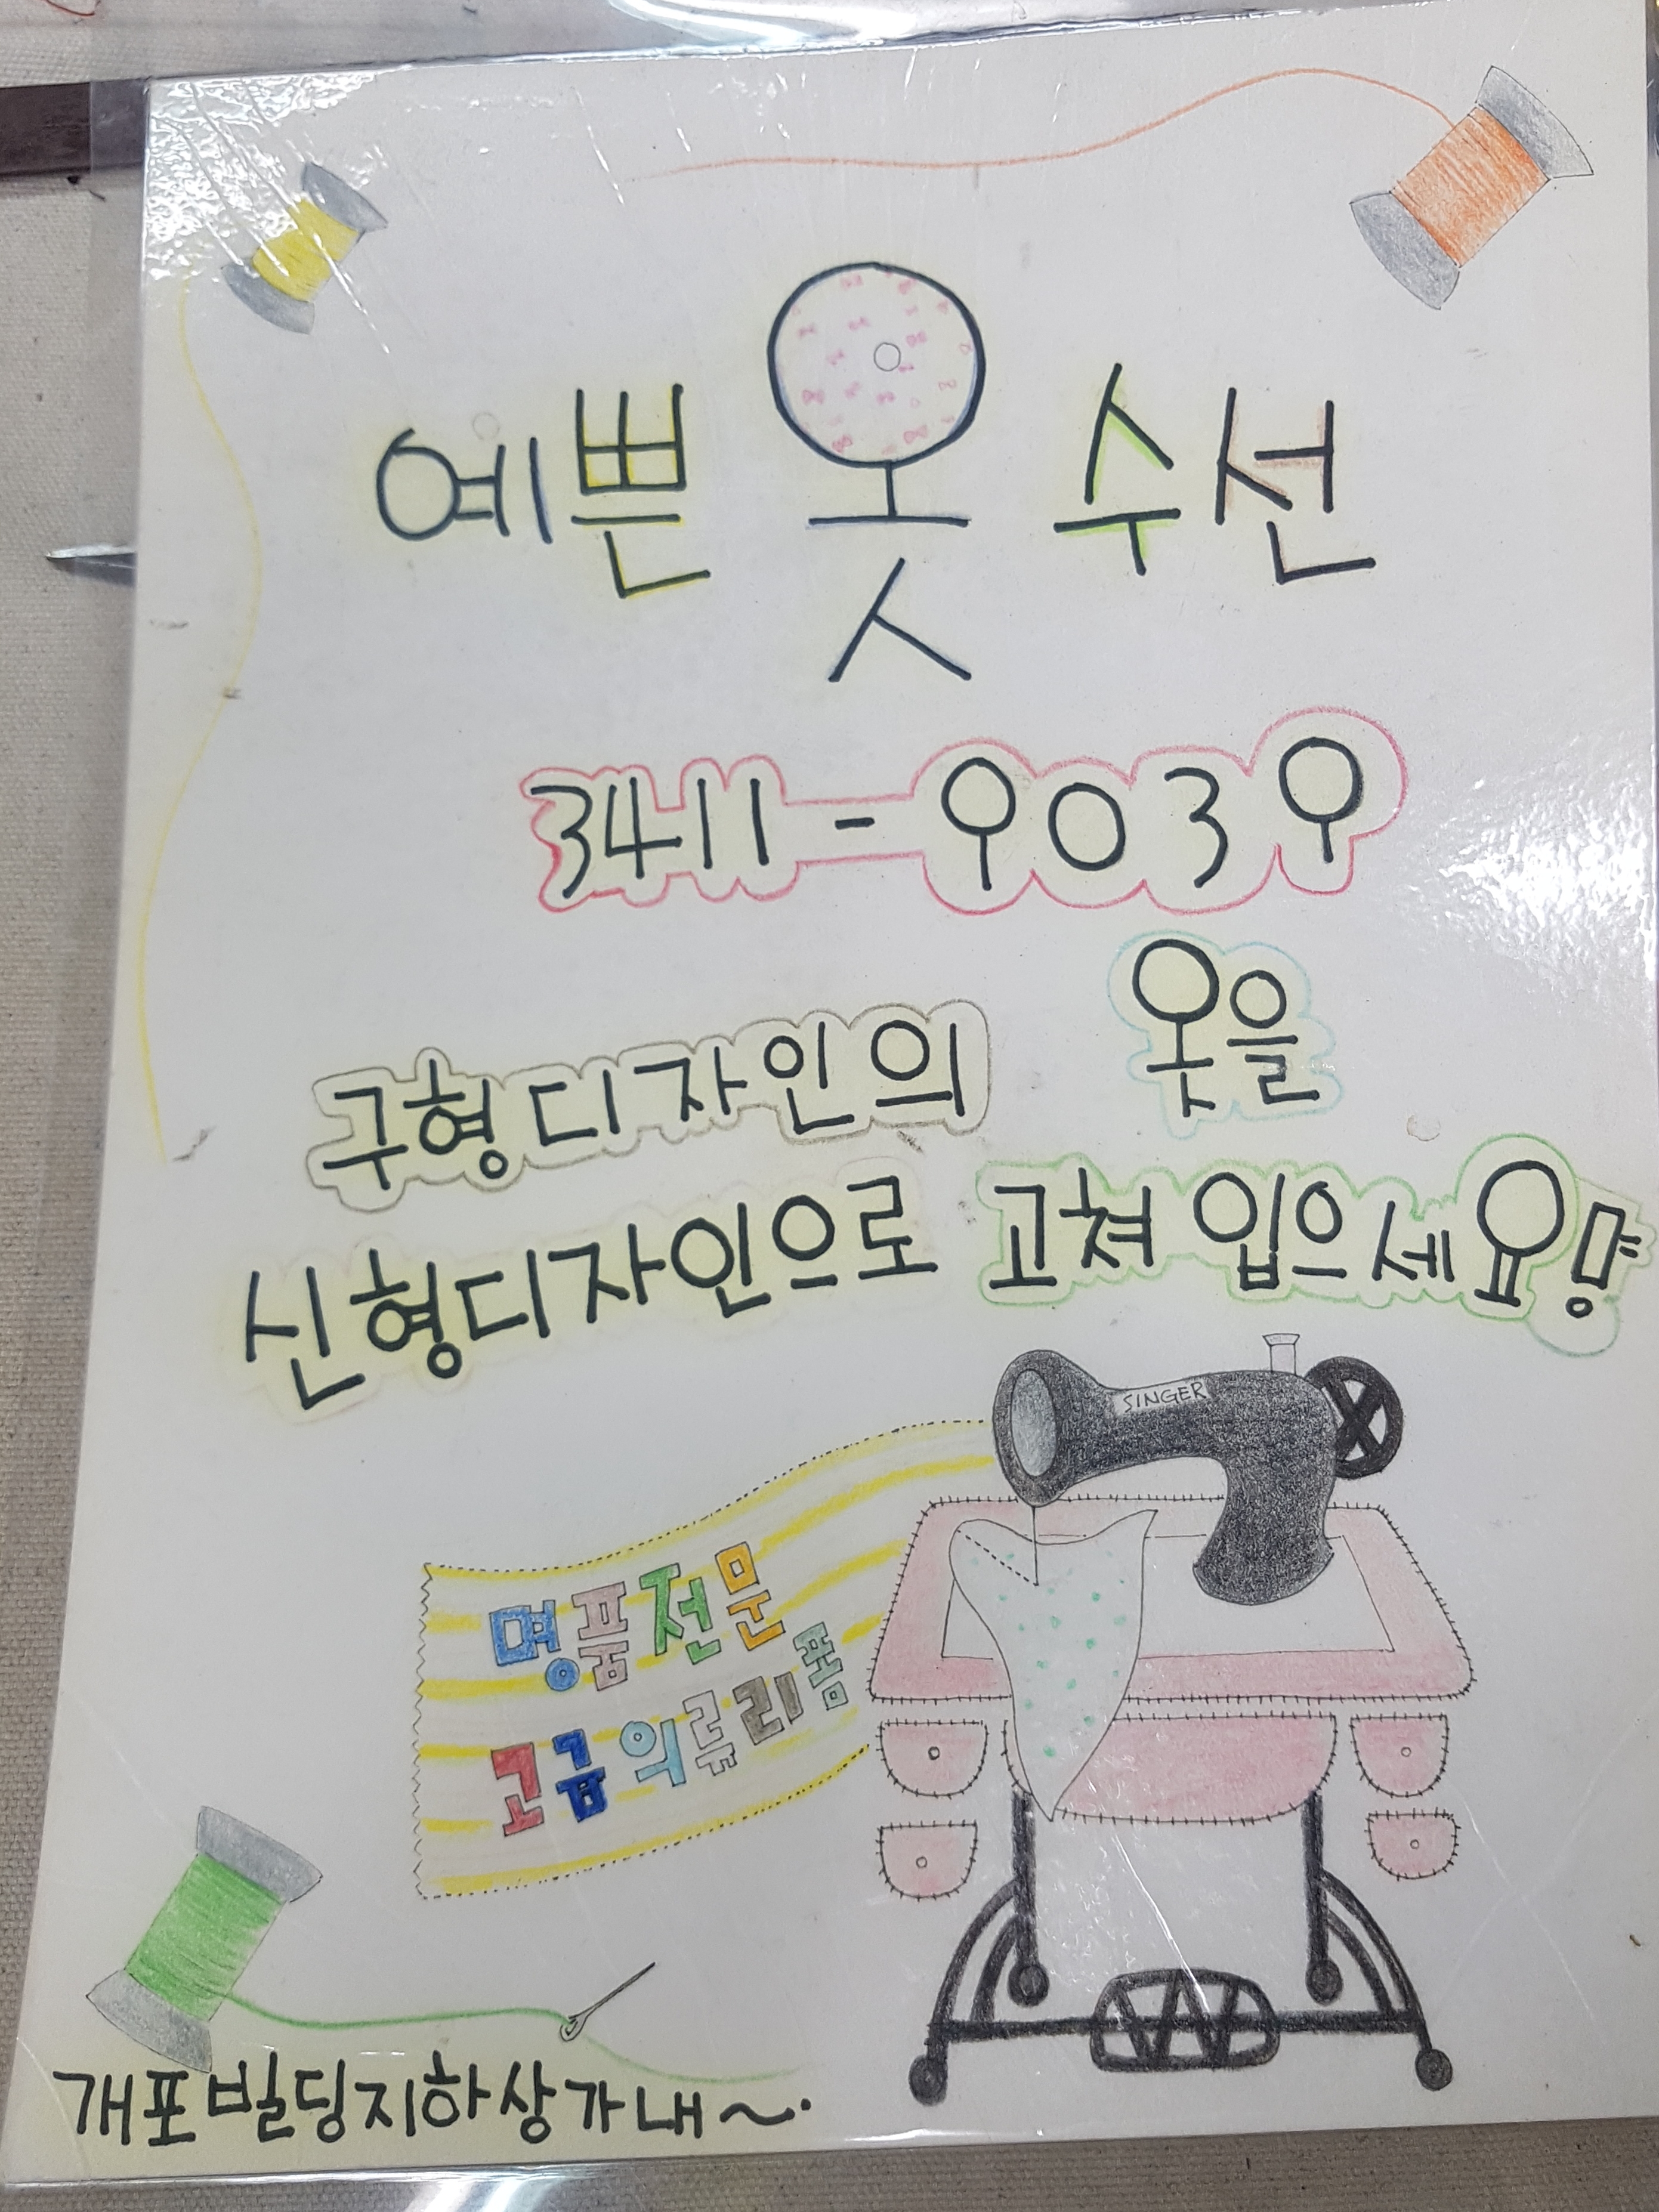 예쁜 옷 수선
3411-9039
구형디자인의 옷을
신형디자인으로 고쳐 입으세요!
SINGER
명품전문
고급의류리폼
개포빌딩지하상가내~.